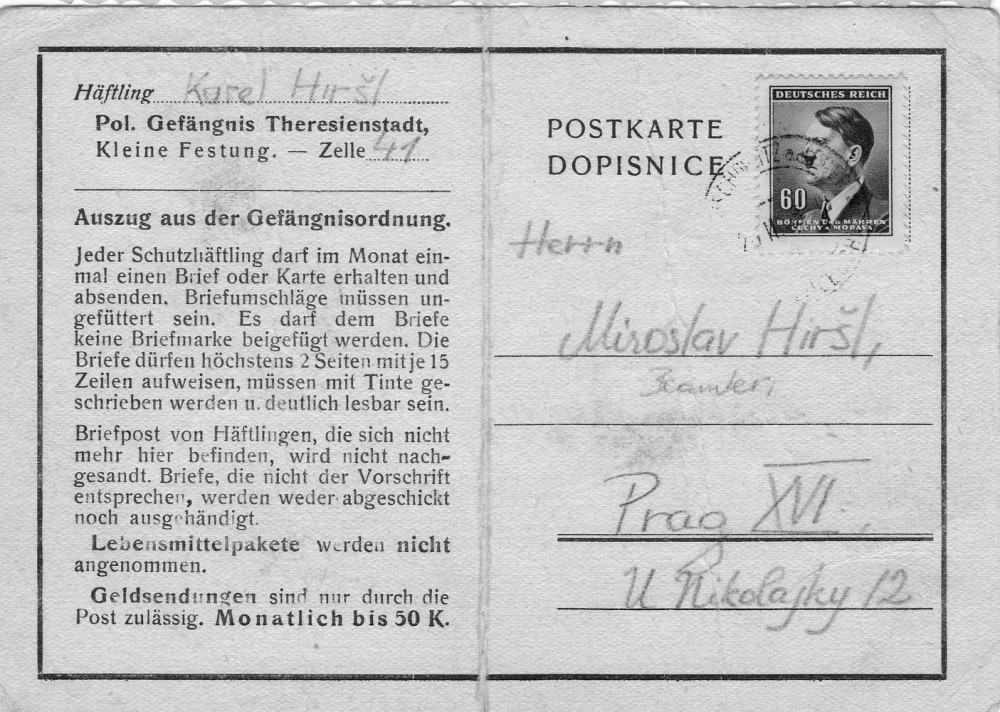 Häftling Karel Hiršl
Pol. Gefängnis Theresienstadt,
Kleine Festung. — Zelle 41
Auszug aus der Gefängnisordnung.
Jeder Schutzhäftling darf im Monat ein-
mal einen Brief oder Karte erhalten und
absenden. Briefumschläge müssen un-
gefüttert sein. Es darf dem Briefe
keine Briefmarke beigefügt werden. Die
Briefe dürfen höchstens 2 Seiten mit je 15
Zeilen aufweisen, müssen mit Tinte ge-
schrieben werden u. deutlich lesbar sein.
Briefpost von Häftlingen, die sich nicht
mehr hier befinden, wird nicht nach-
gesandt. Briefe, die nicht der Vorschrift
entsprechen, werden weder abgeschickt
noch ausgehändigt.
Lebensmittelpakete werden nicht
angenommen.
Geldsendungen sind nur durch die
Post zulässig. Monatlich bis 50 K.
POSTKARTE
DOPISNICE
DEUTSCHES REICH
60
BÖHMEN UND MÄHREN
ČECHY A MORAVA
Herrn
Miroslav Hiršl,
Beamter,
Prag XVI.,
U Nikolajky 12